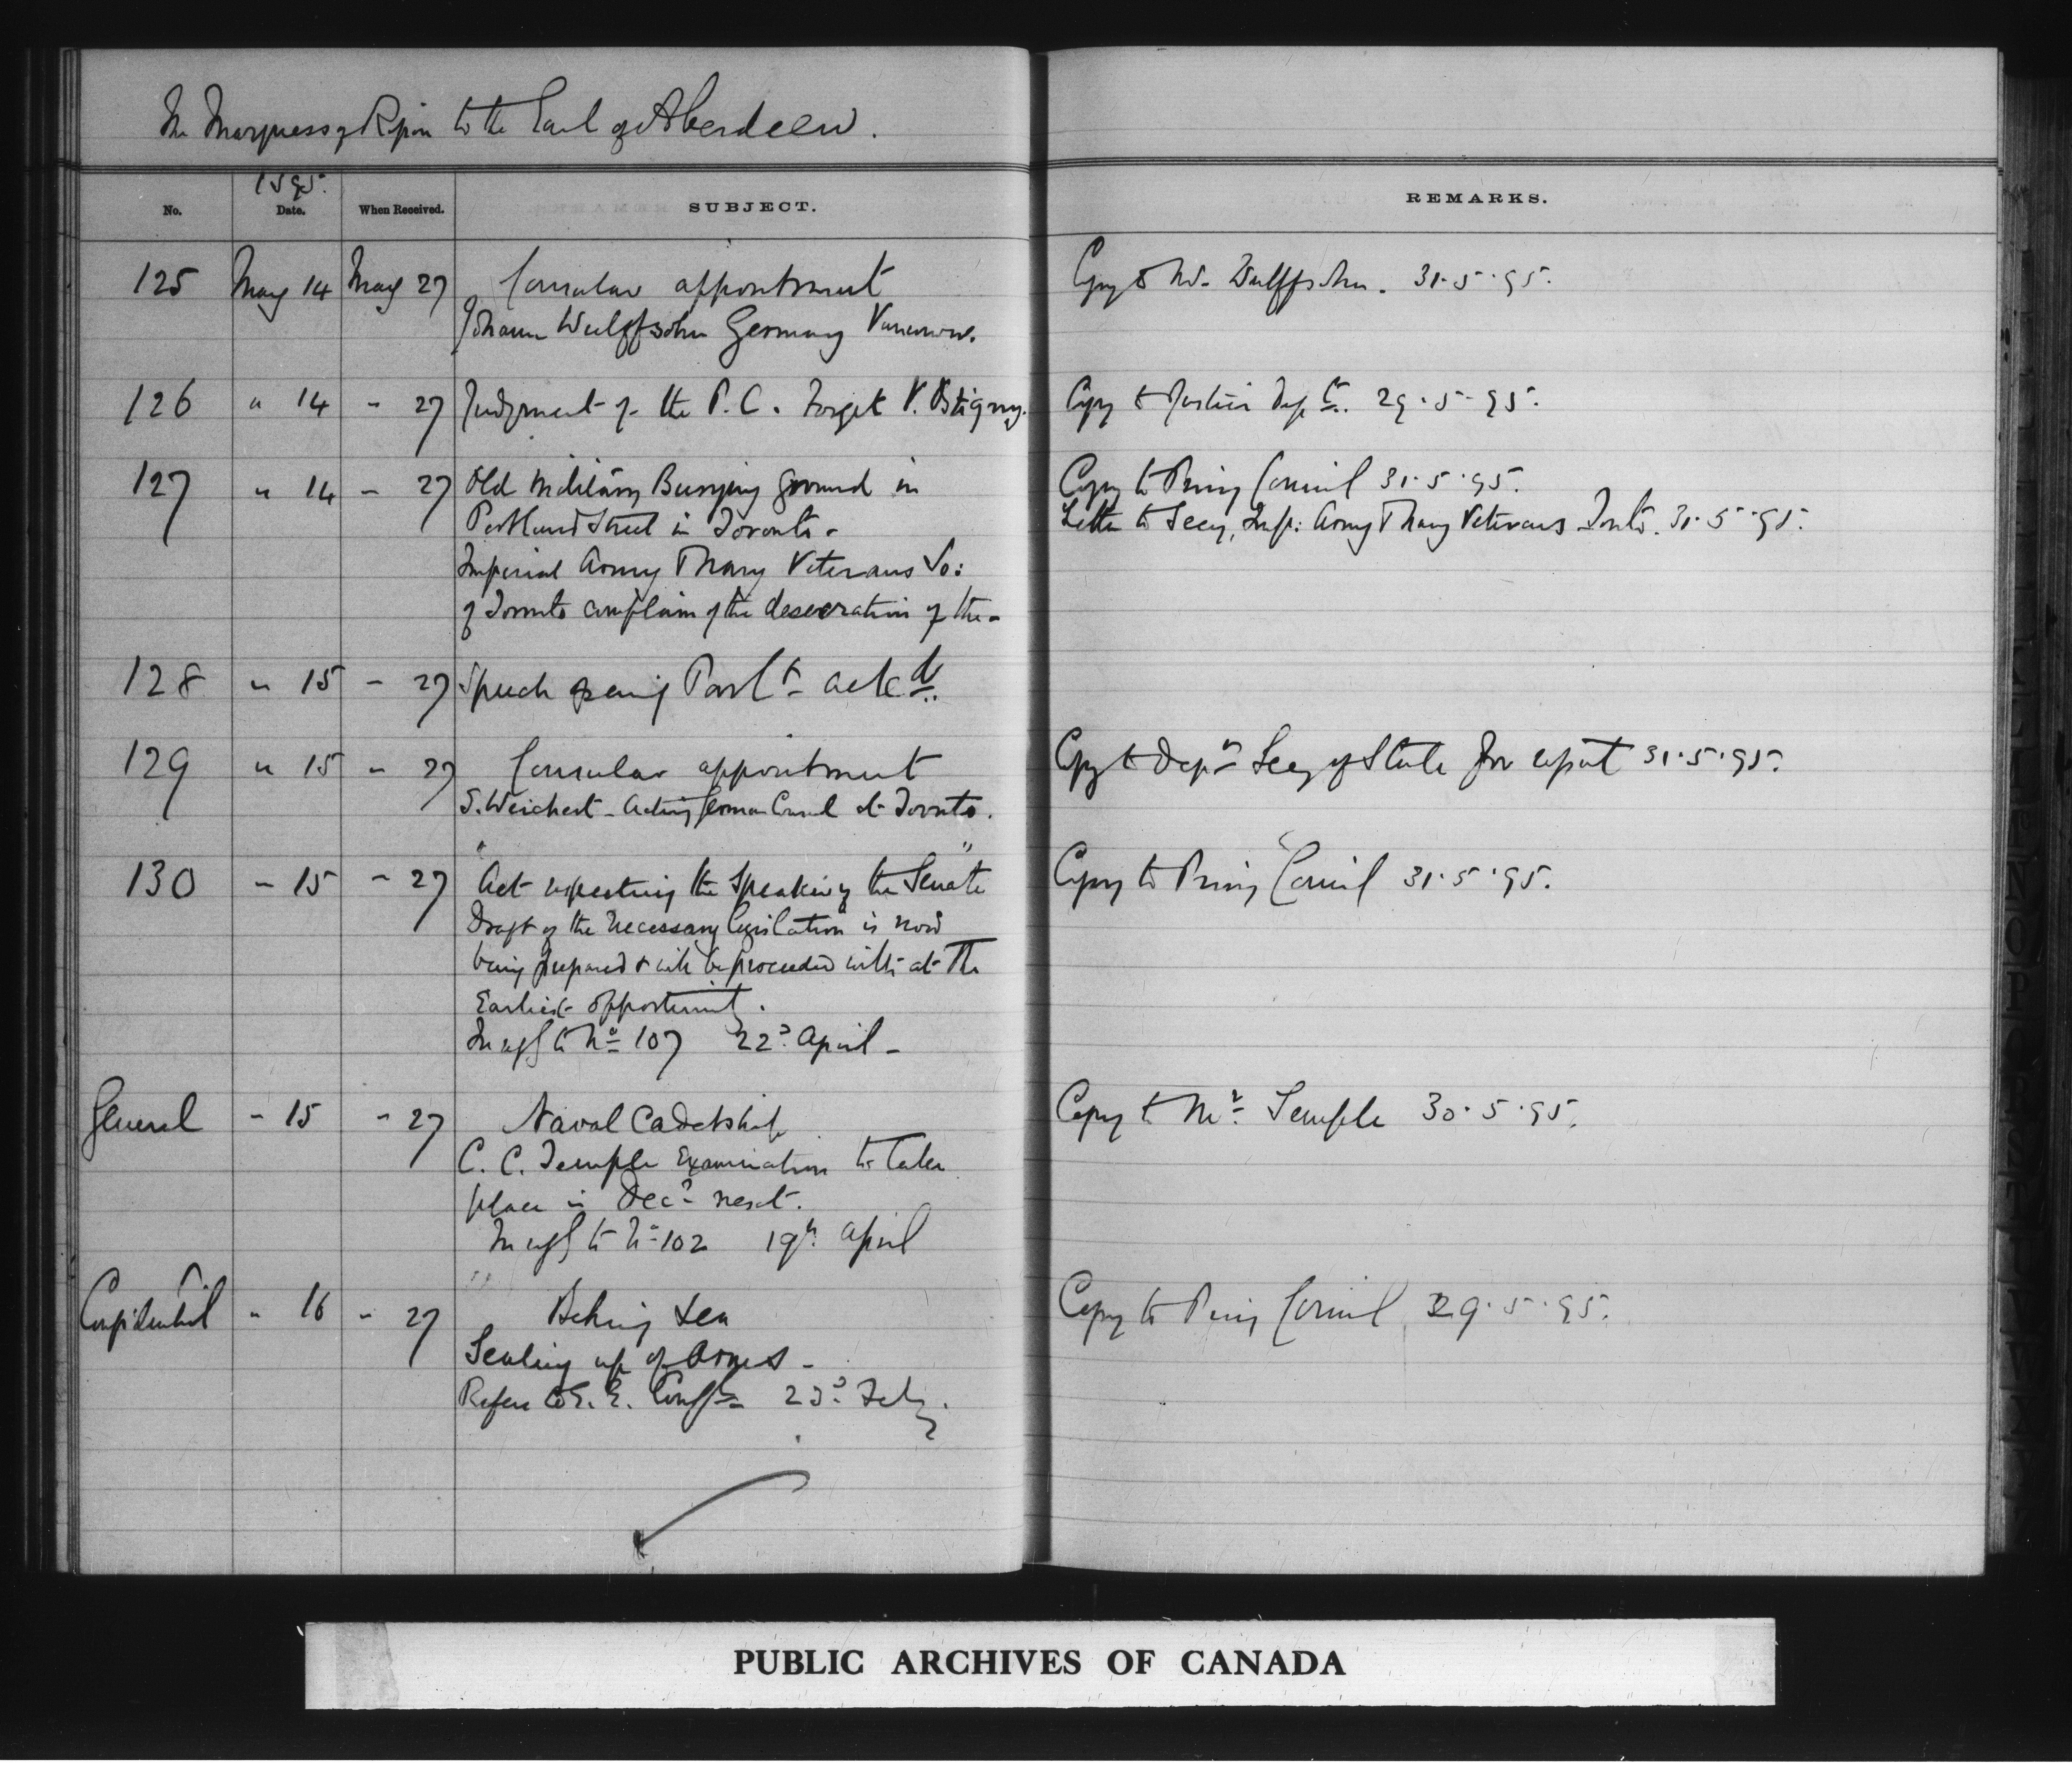 The Marquess of Ripon to the Earl of Aberdeen.
1895.
No. Date. When Received. SUBJECT. REMARKS.
125 May 14 May 27 Consular appointment Copy to Mr. Wulffsohn. 31.5.95.
Johann Wulffsohn Germany Vancouver.
126 " 14 - 27 Judgment of the P.C. Forget V. Ostigny. Copy to Justice Dept. 29.5.95.
127 " 14 - 27 Old Military Burying ground in Copy to Privy Council 31.5.95.
Portland Street in Toronto - Letter to Secy, Imp: Army & Navy Veterans Tonto. 31.5.95.
Imperial Army & Navy Veterans So:
of Toronto complain of the desecration of the -
128 " 15 - 27 Speech opening Parlt ackd.
129 " 15 - 27 Consular appointment Copy to Depy Secy of State for report 31.5.95.
S. Weichert - Acting German Consul at Toronto.
130 - 15 - 27 "Act respecting the Speaker of the Senate" Copy to Privy Council 31.5.95.
Draft of the necessary legislation is now
being prepared & will be proceeded with at the
Earliest opportunity.
In reply to No 107 22d. April -
General - 15 - 27 Naval Cadetship Copy to Mr. Temple 30.5.95.
C. C. Temple Examination to take
place in Decr next.
In reply to No 102 19th. April
Confidential " 16 - 27 Behring Sea Copy to Privy Council 29.5.95.
Sealing up of Arms -
Refers to Y. E. Confl 23d. Feby.
PUBLIC ARCHIVES OF CANADA